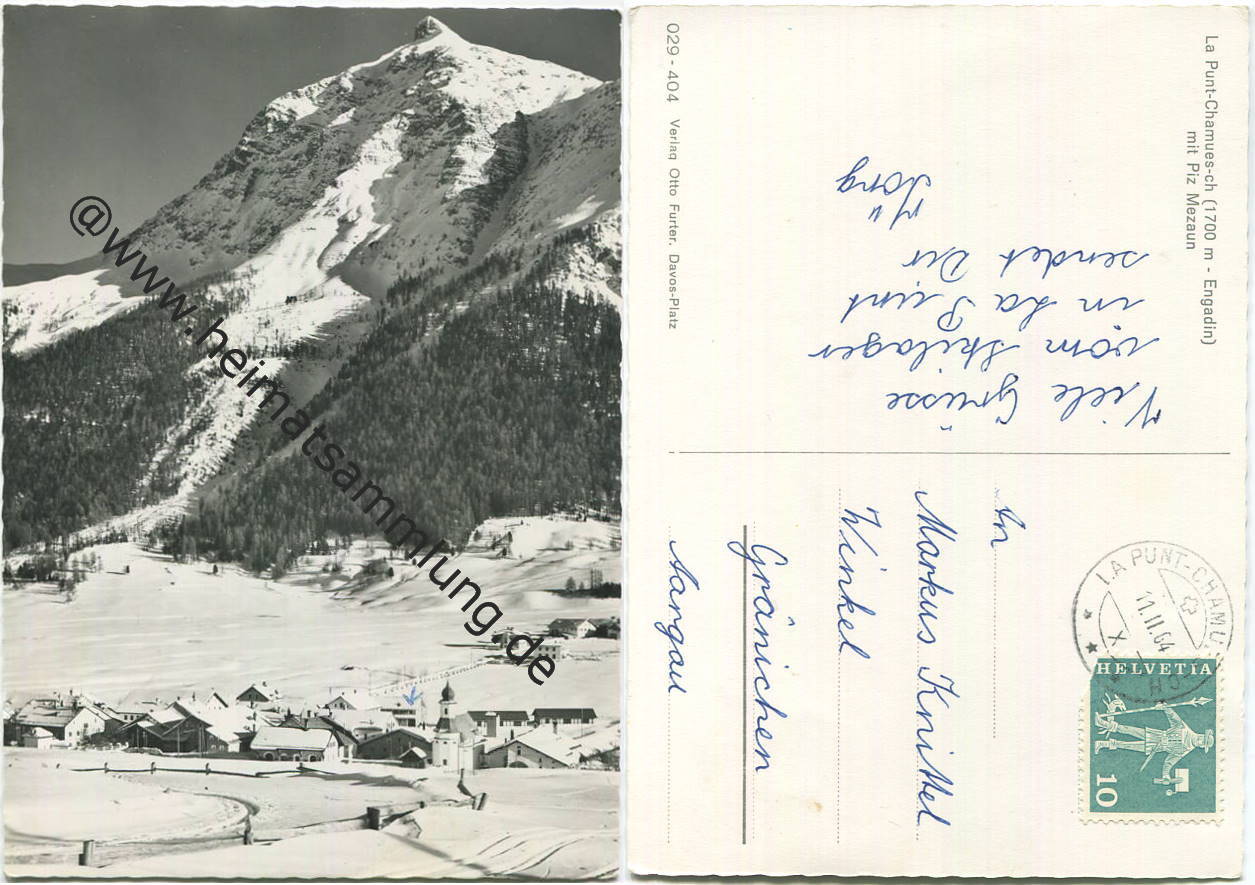 @www.heimatsammlung.de
La Punt-Chamues-ch (1700 m - Engadin)
mit Piz Mezaun
029 - 404 Verlag Otto Furter, Davos-Platz
Viele Grüsse
vom Skilager
in La Punt
sendet Dir
Jörg
LA PUNT-CHAMU
11.II.64
HELVETIA
10
An
Markus Knittel
Winkel
Gränichen
Aargau